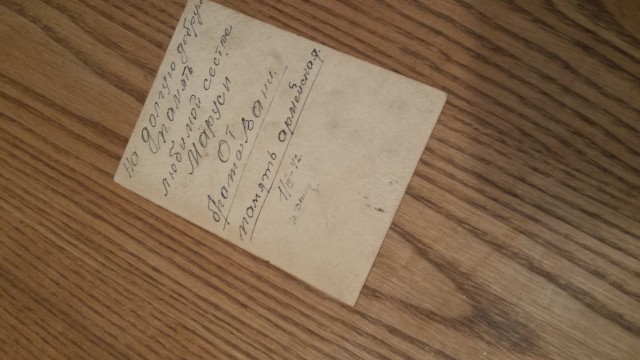 На долгую добрую
память
любимой сестре
Маруси
От
брата Вани.
память армейская.